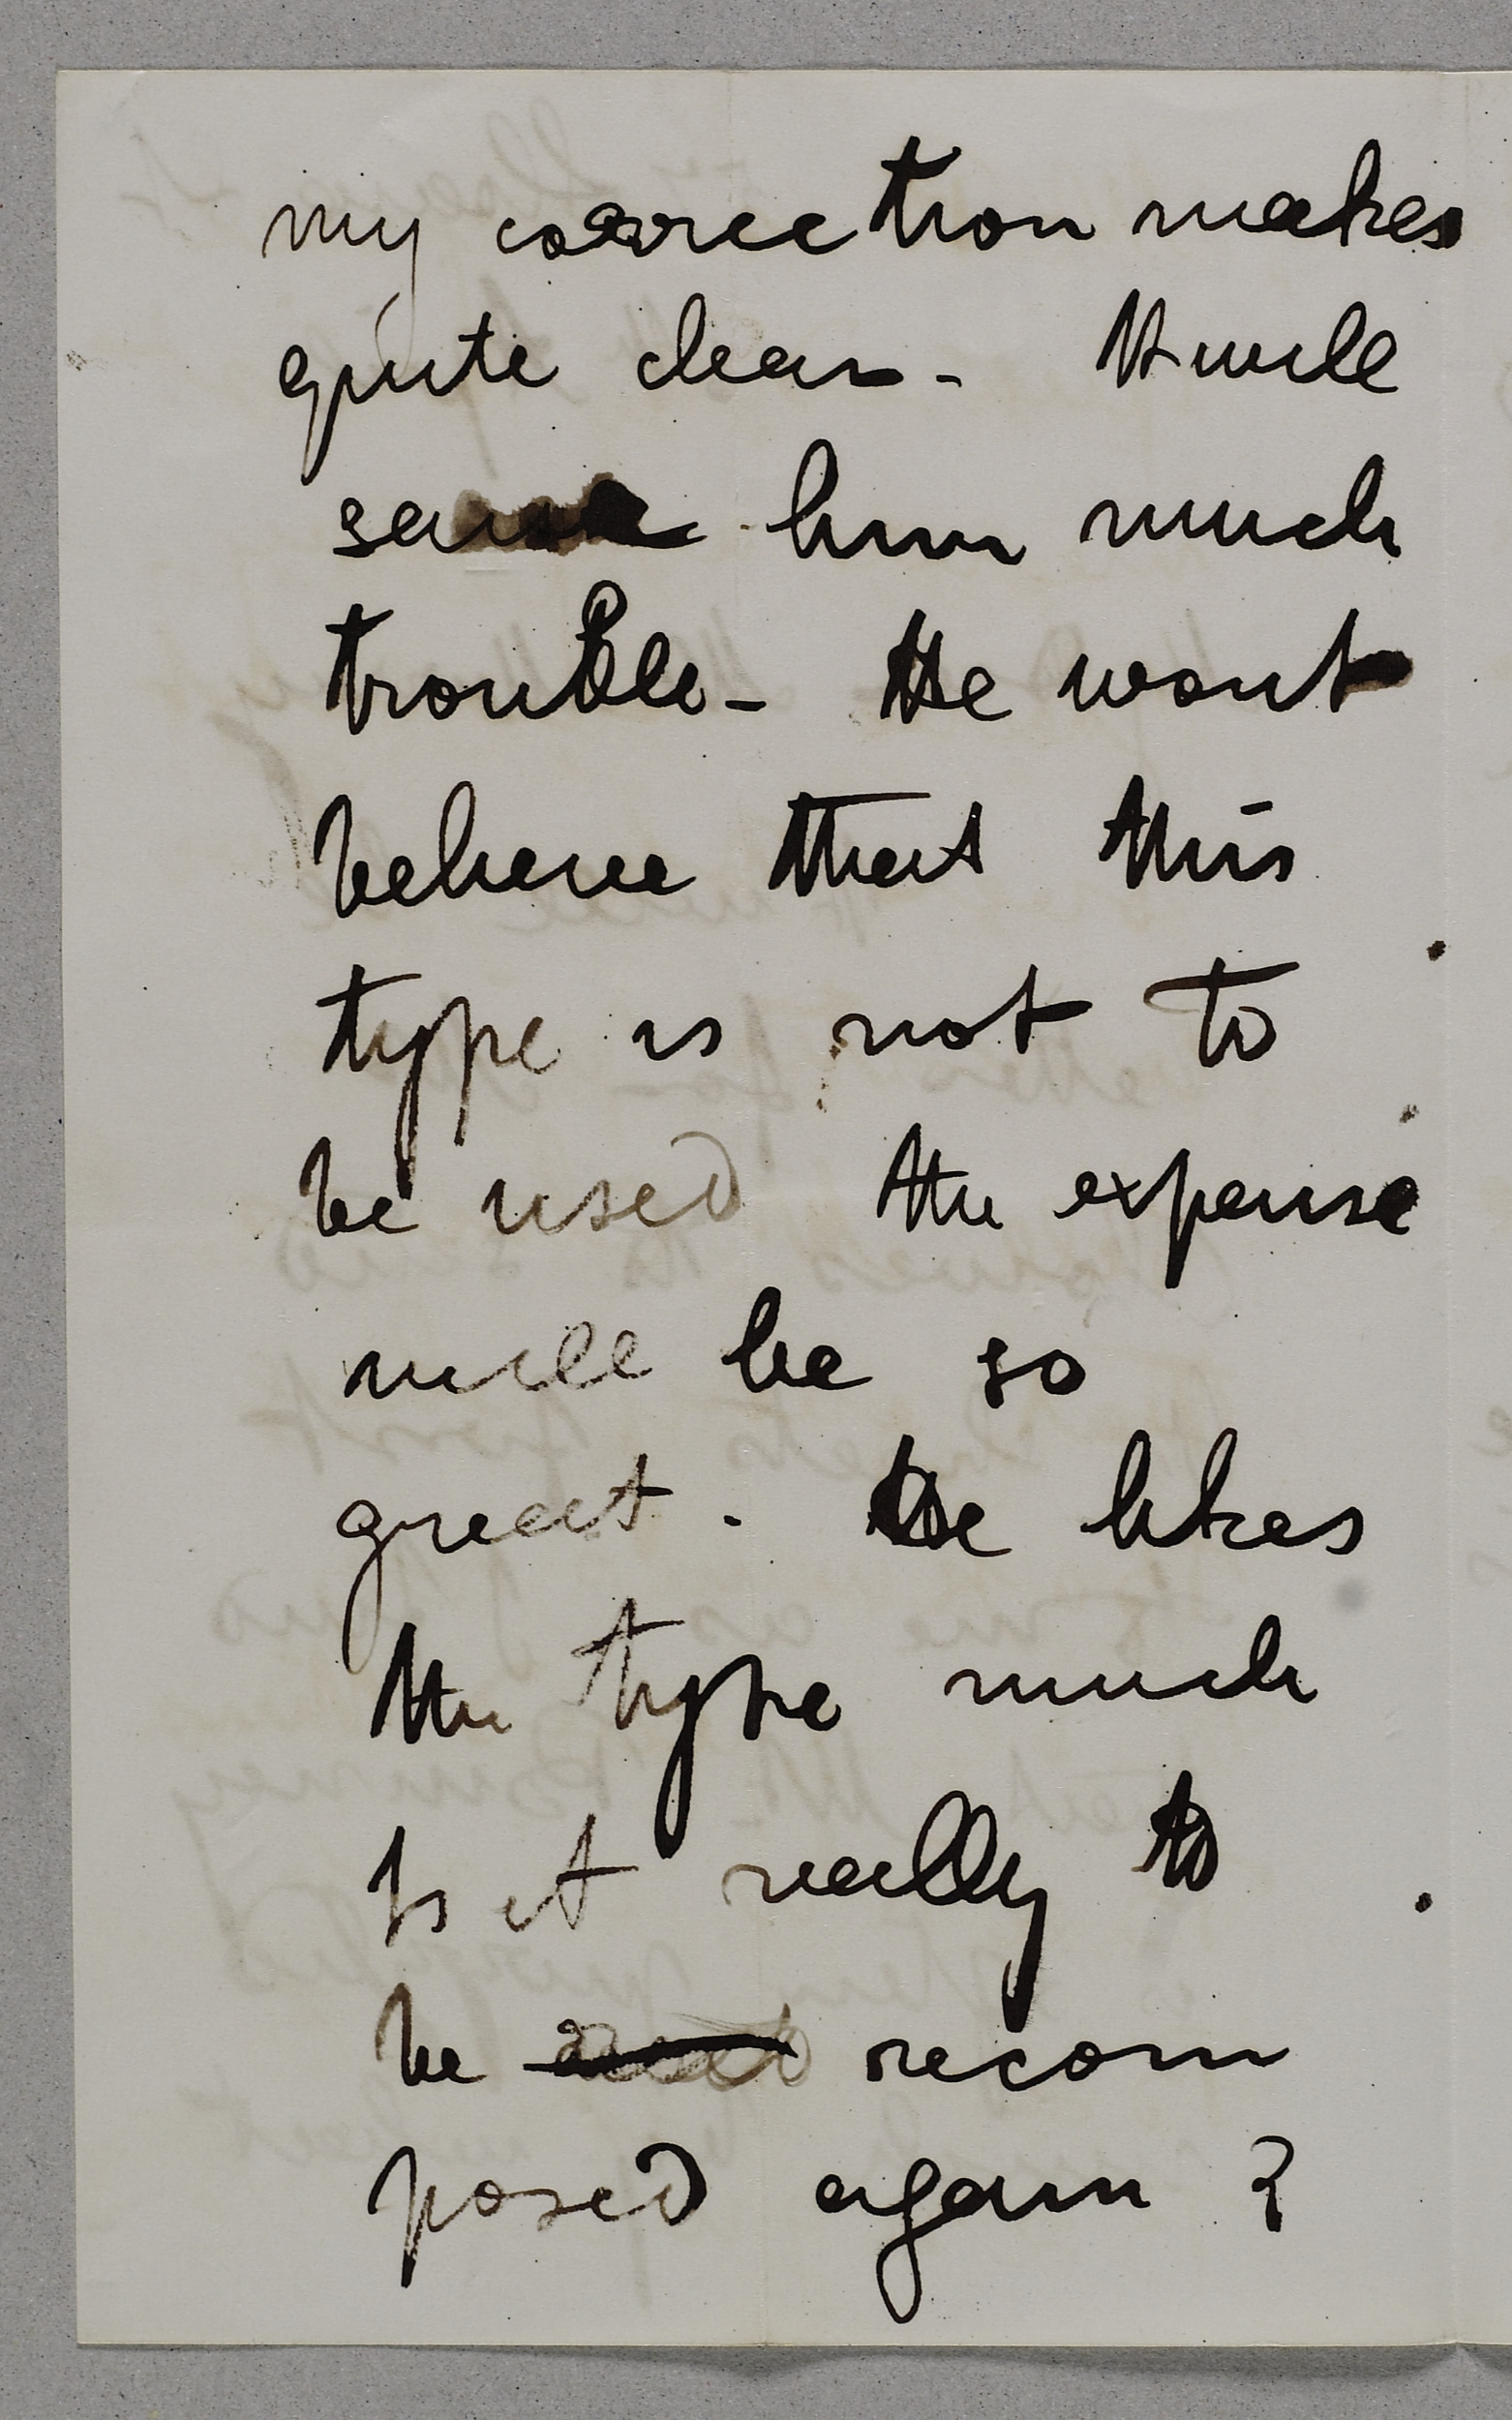 my correction makes
quite clear - It will
save him much
trouble - He wont
believe that this
type is not to
be used the expense
will be so
great - He likes
the type much
Is it really to
be recom
posed again ?